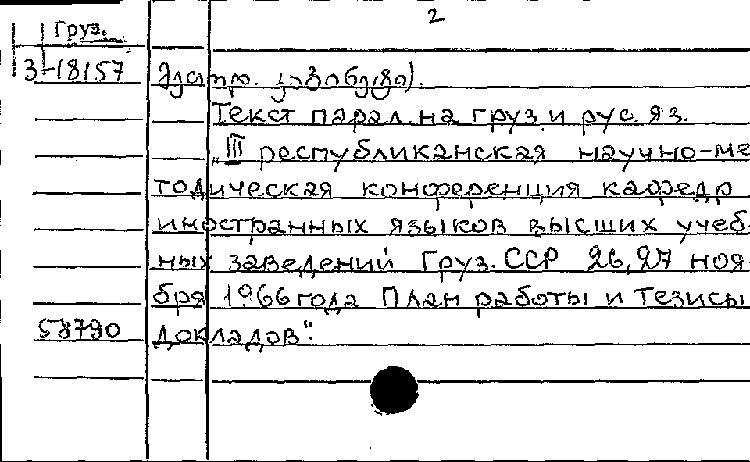 2
Груз.
3-18157
Текст парал. на груз. и рус. яз.
„III республиканская научно-ме
тодическая конференция кафедр
иностранных языков высших учеб
ных заведений Груз. ССР 26, 27 ноя
бря 1966 года План работы и тезисы
58790 докладов".